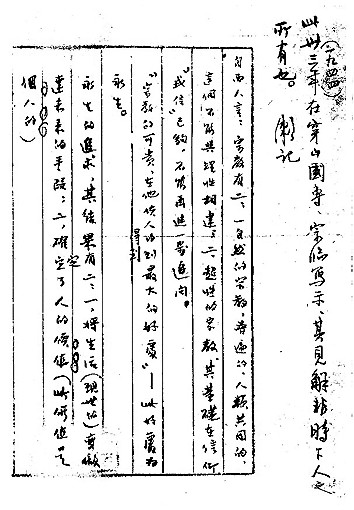 此卅三年在穿山國專、宗臨寫示、其見解非時下人之
(一九四四)
所有也。 記
西人言：宗教有二：一自然的宗教，普遍的、人類共同的，
這個不能與理性相違；二、超性的宗教，其基礎在信仰
“我信”已夠，不必再進一步追問。
“宗教的可貴，在他使人得到最大的好處”——此好處為
得到
永生。
永生的追求，其結果有二：一、將生活(現世的)變做
達未來的手段；二、確定了人的價值(此價值是
個人的)